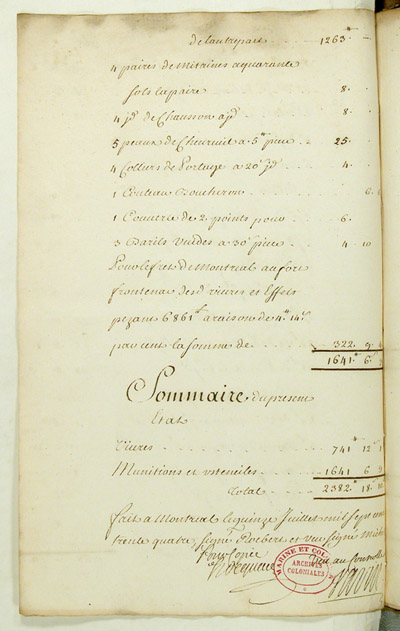 de lautrepart 1263# "
4 paires de Mitaines a quarante
sols la paire 8.
4 pd de Chausson a pd 8.
5 peaux de Cheureuil a 5# piece 25.
4 Colliers de Portage a 20s pd 4.
1 Couteau Boucheron 6.
1 Couverte de 2. points pour 6.
3 Barils Vuides a 30s piece 4 10
Pour le fret de Montreal au fort
frontenac desd vivres et Effets
pezant 6861 a raison de 4# 14s
par cent la somme de 322. 9.
1641# 6.
Sommaire du present
Etat
Vivres 741# 12
Munitions et ustenciles 1641 6
Total 2382# 18.
fait a Montreal le quinze Juillet mil sept cent
trente quatre, signé et veu signé
Pour Copie
Hocquart
MARINE ET COL.
ARCHIVES
COLONIALES